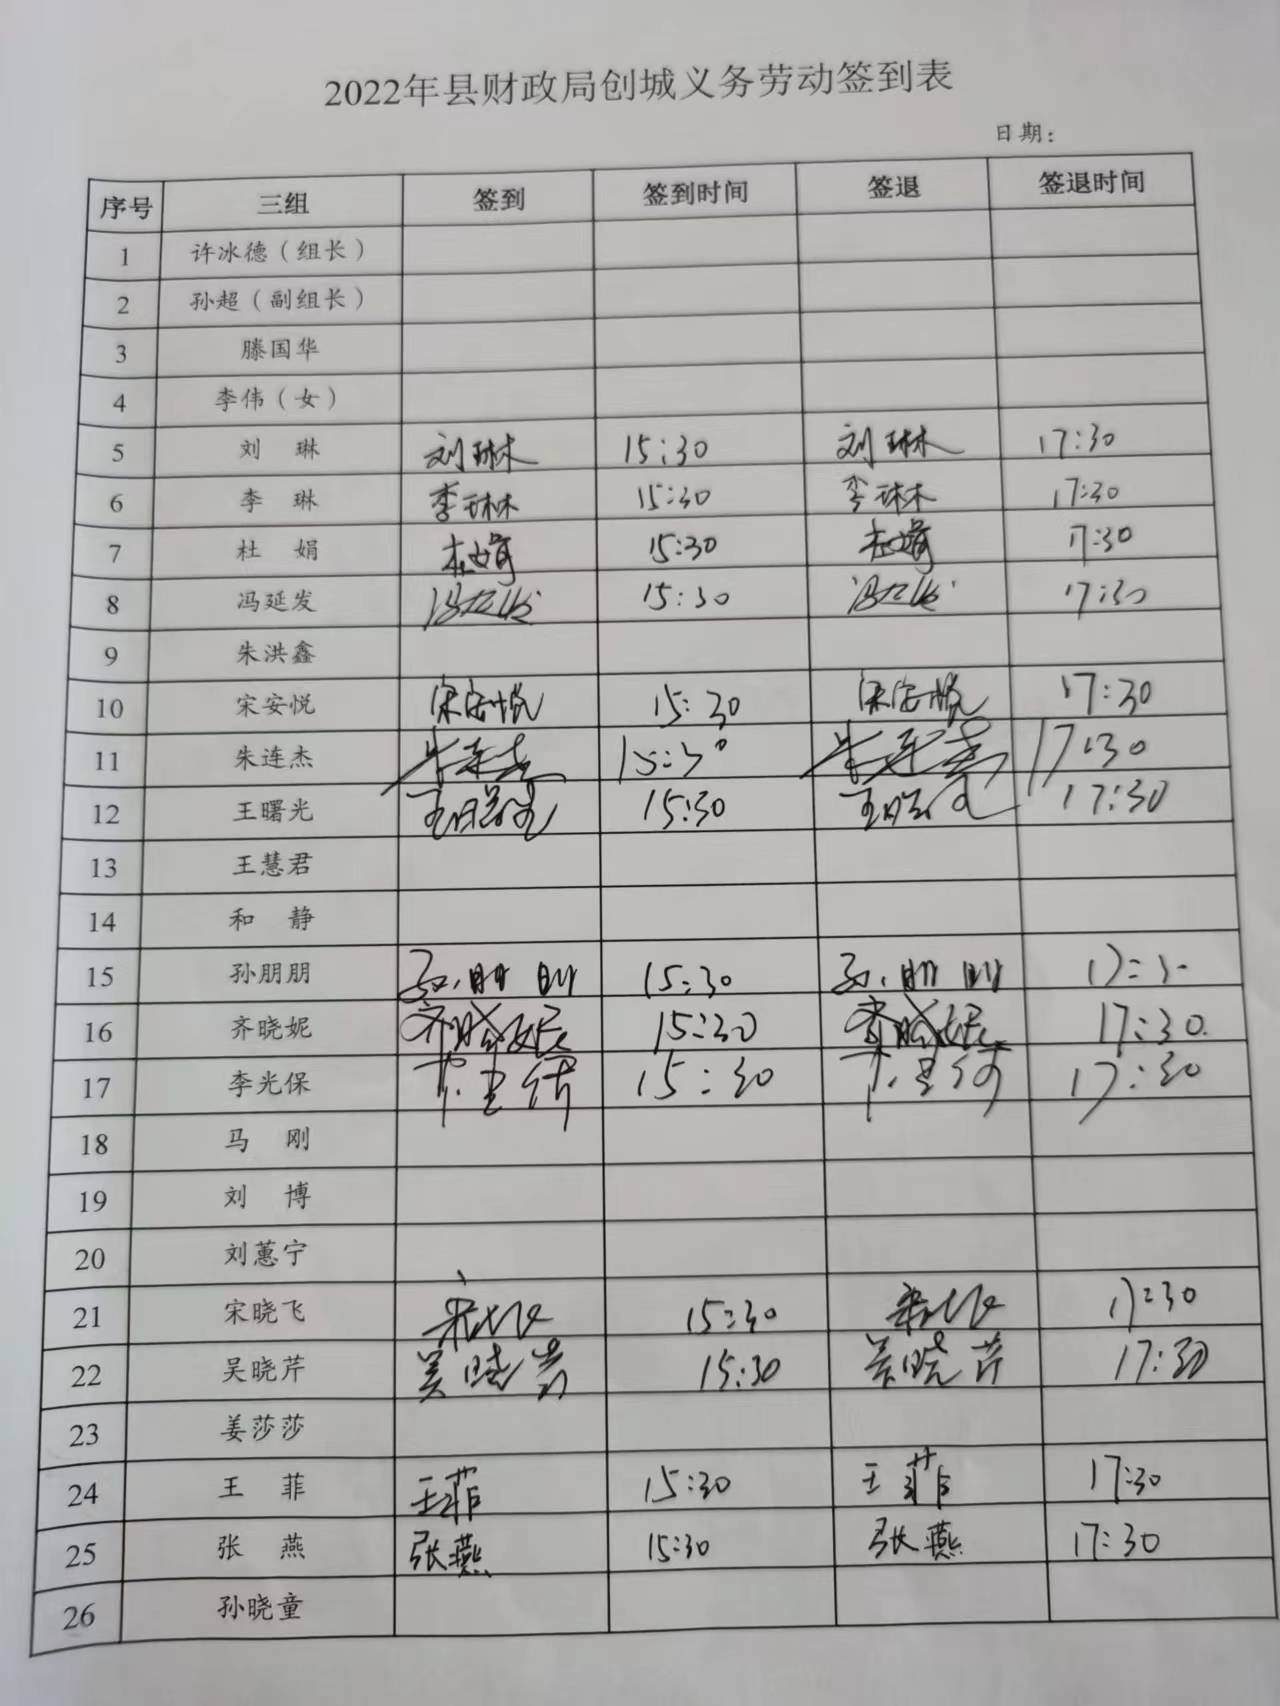 2022年县财政局创城义务劳动签到表
日期：
序号 三组 签到 签到时间 签退 签退时间
1 许冰德（组长）
2 孙超（副组长）
3 滕国华
4 李伟（女）
5 刘 琳 刘琳 15:30 刘琳 17:30
6 李 琳 李琳 15:30 李琳 17:30
7 杜 娟 杜娟 15:30 杜娟 17:30
8 冯延发 冯延发 15:30 冯延发 17:30
9 朱洪鑫
10 宋安悦 宋安悦 15:30 宋安悦 17:30
11 朱连杰 朱连杰 15:30 朱连杰 17:30
12 王曙光 王曙光 15:30 王曙光 17:30
13 王慧君
14 和 静
15 孙朋朋 孙朋朋 15:30 孙朋朋 17:30
16 齐晓妮 齐晓妮 15:30 齐晓妮 17:30.
17 李光保 15:30 17:30
18 马 刚
19 刘 博
20 刘蕙宁
21 宋晓飞 宋晓飞 15:30 宋晓飞 17:30
22 吴晓芹 吴晓芹 15:30 吴晓芹 17:30
23 姜莎莎
24 王 菲 王菲 15:30 王菲 17:30
25 张 燕 张燕 15:30 张燕 17:30
26 孙晓童